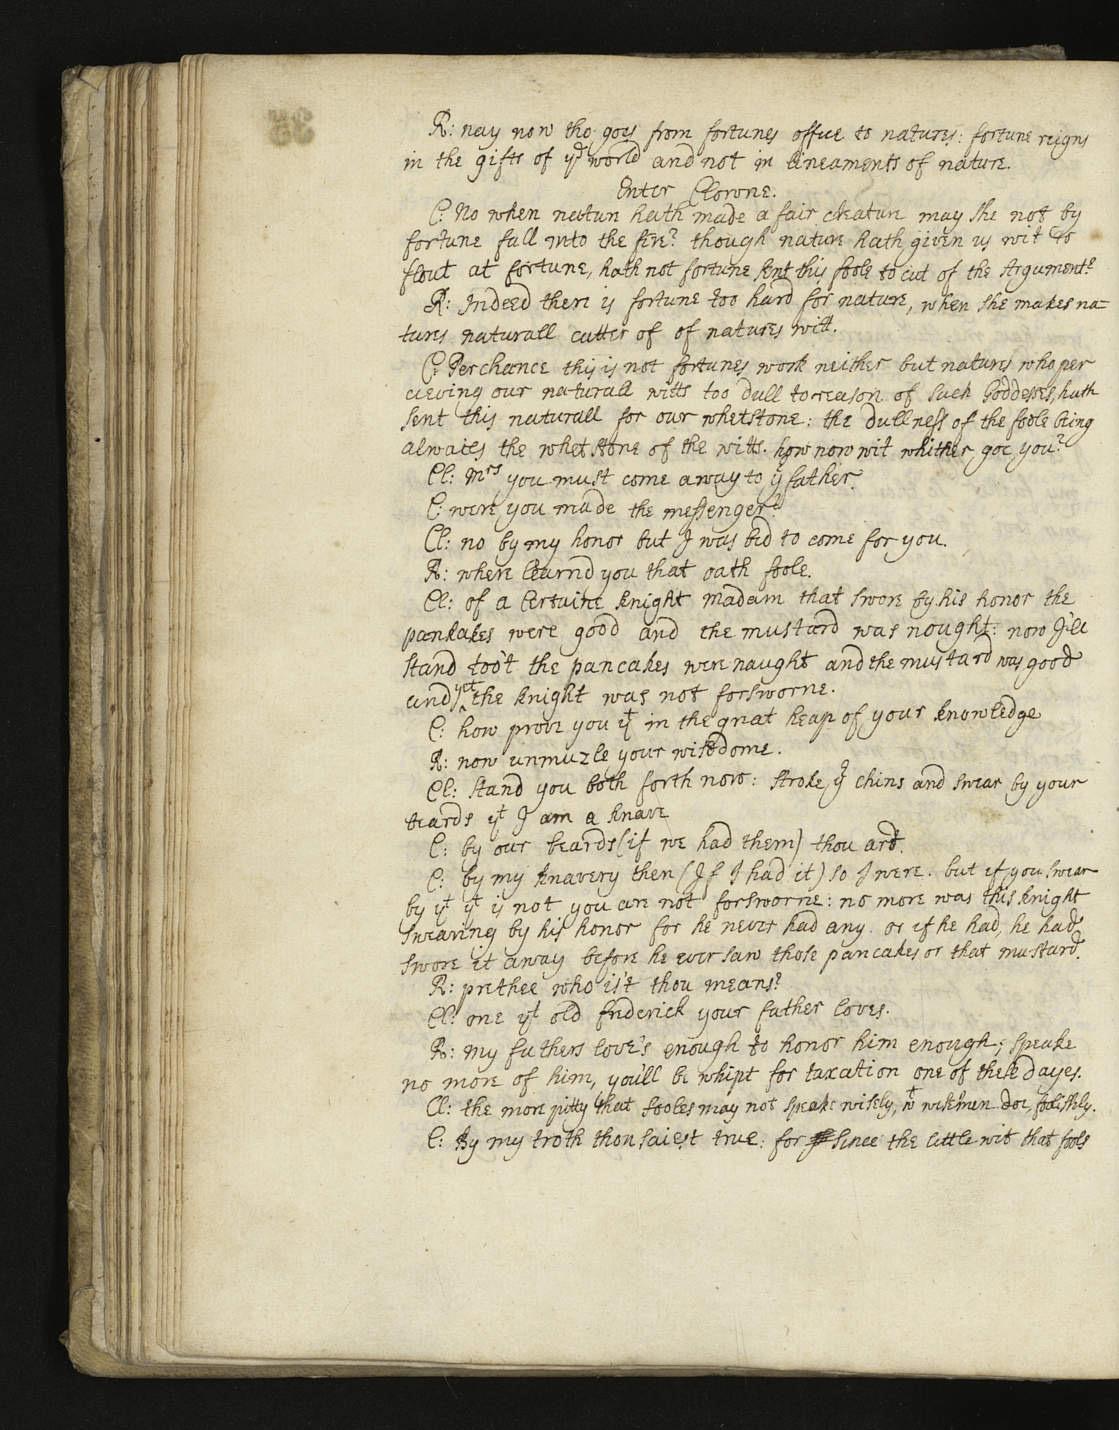 R: nay now tho goes from fortunes office to natures: fortune reigns
in the gifts of ye world and not in lineaments of nature.
Enter Clowne.
C: No when nature hath made a fair creature may she not by
fortune fall into the fire? though nature hath given us wit to
flout at fortune, hath not fortune sent this foole to cut of the Argument?
R: Indeed there is fortune too hard for nature, when she makes na=
tures naturall cutter of of natures witt.
C: Perchance this is not fortunes work neither but natures who per
cieving our naturall witts too dull to reason of such Goddesses, hath
sent this naturall for our whetstone: the dullness of the foole being
alwaies the whetstone of the witts. how now wit whither goe you?
Cl: Mrs you must come away to yr father.
C: were you made the messenger?
Cl: no by my honor but I was bid to come for you.
R: where learnd you that oath foole.
Cl: of a Certaine knight madam that swore by his honor the
pankakes were good and the mustard was nought: now I'le
stand too't the pancakes were naught and the mustard was good
and yet the knight was not forsworne.
C: how prove you yt in the great heap of your knowledge
R: now unmuzle your wisedome.
Cl: stand you both forth now: stroke yr chins and swear by your
beards yt I am a knave
C: by our beards (if we had them) thou art.
C: by my knavery then (If I had it) so I were. but if you swear
by yt yt is not you are not forsworne: no more was this knight
swearing by his honor for he never had any. or if he had, he had
swore it away before he ever saw those pancakes or that mustard.
R: prethee who is't thou means?
Cl: one yt old frederick your father loves.
R: My fathers love's enough to honor him enough; speake
no more of him, you'll be whipt for taxation one of these dayes.
Cl: the more pitty that fooles may not speake wisely, wt wisemen doe foolishly.
C: By my troth thou saiest true: for since the little wit that fools